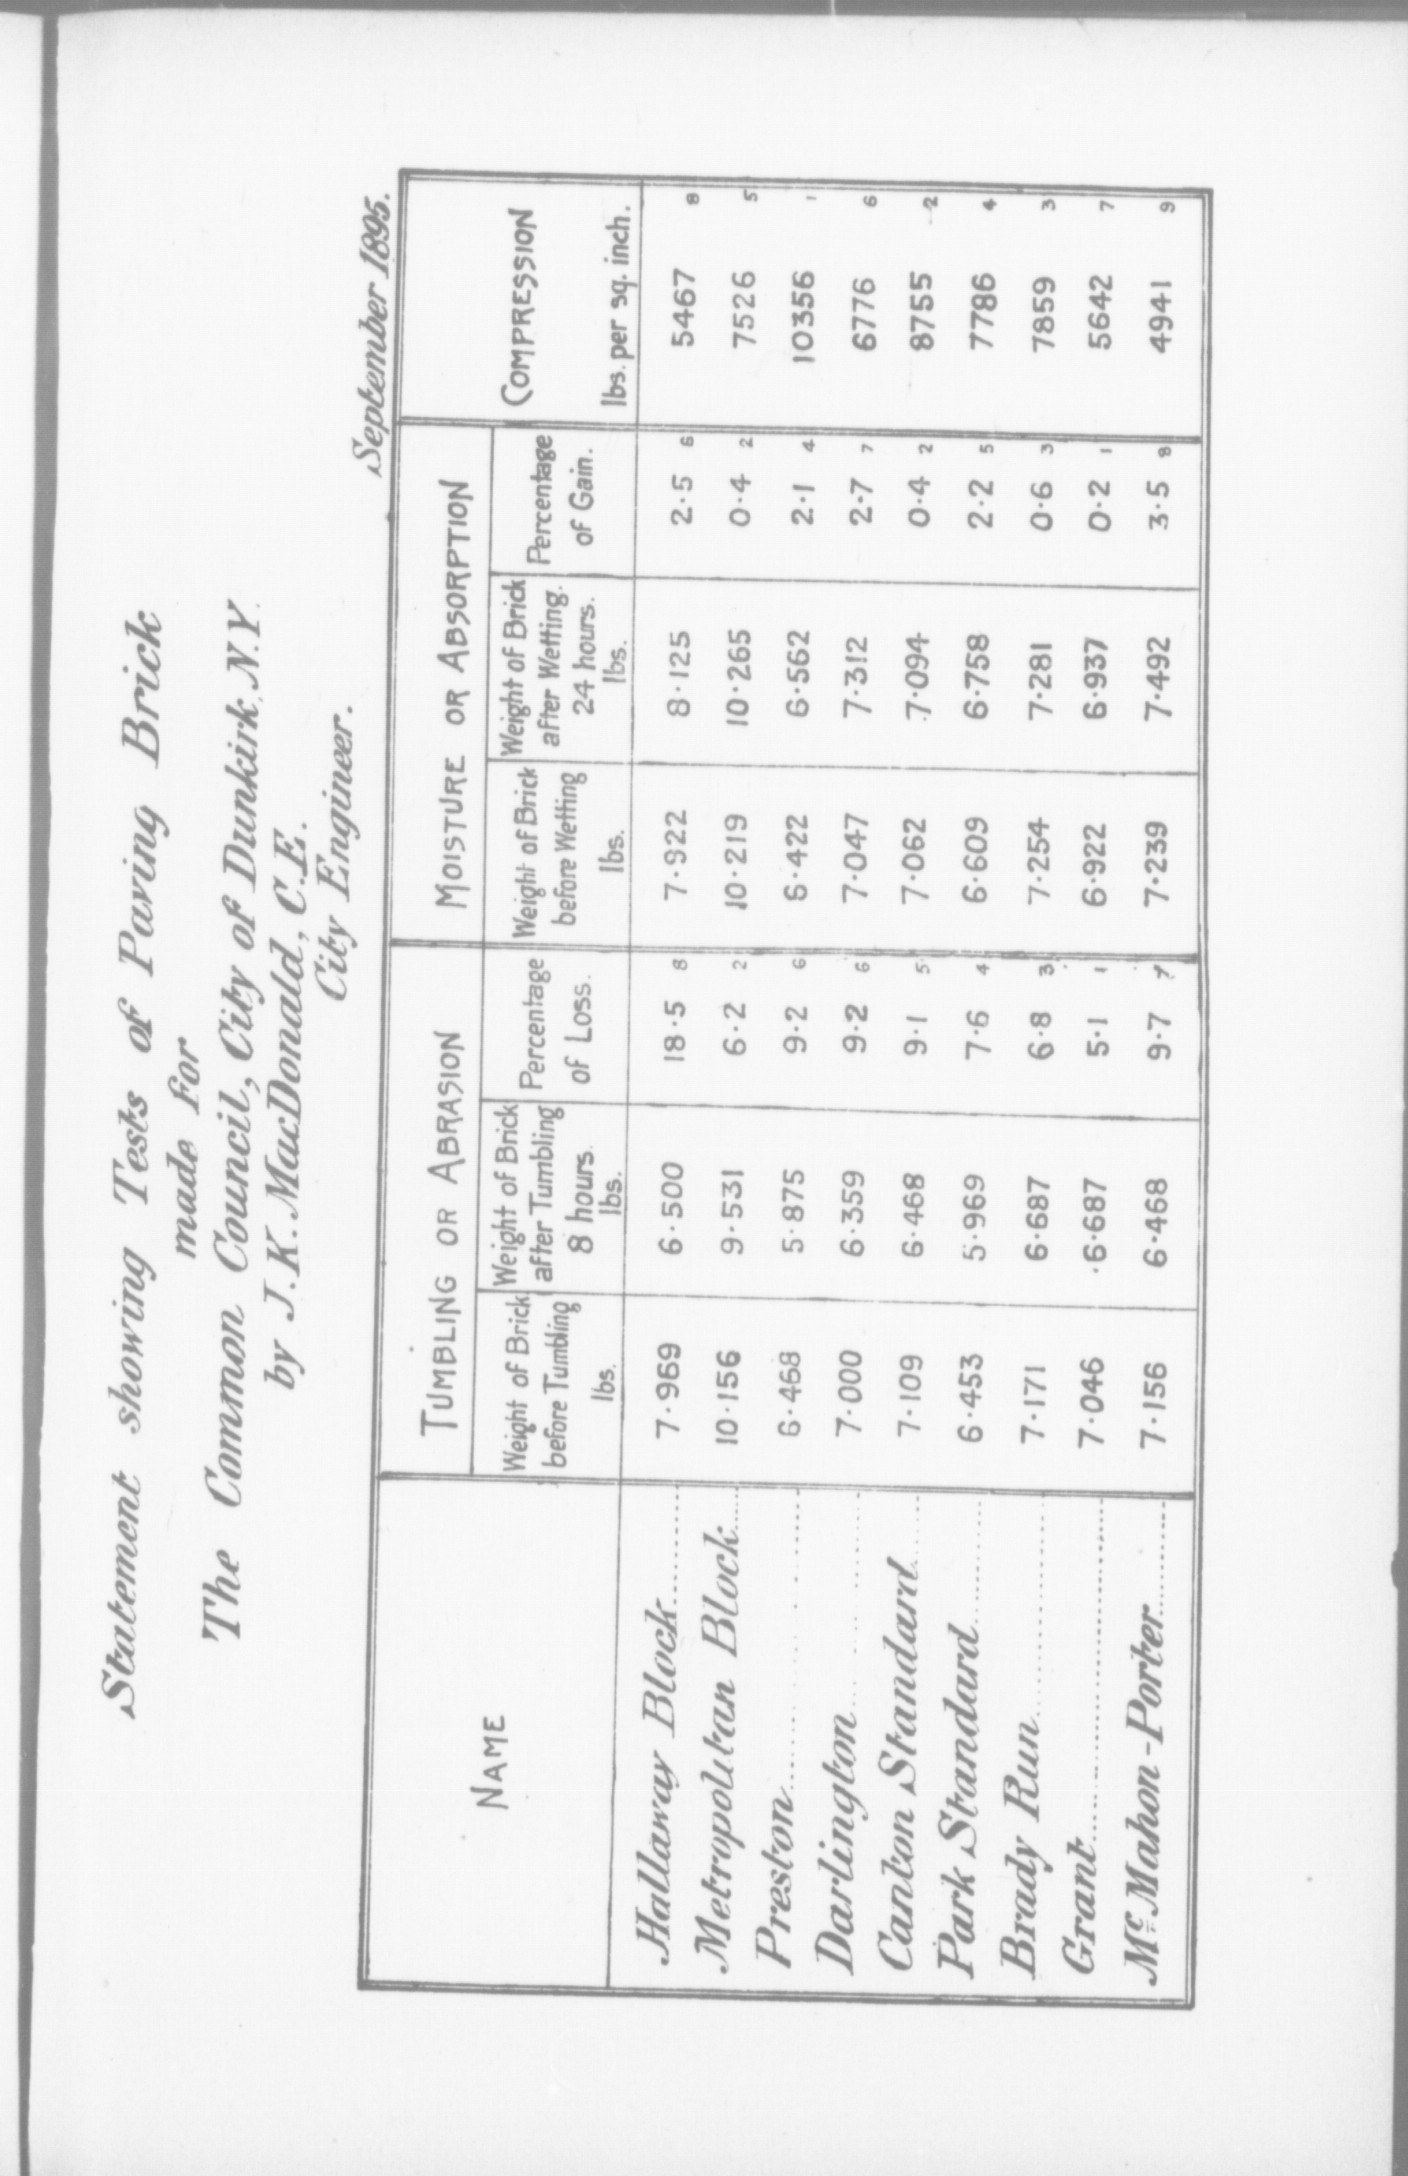 Statement showing Tests of Paving Brick
made for
The Common Council, City of Dunkirk, N.Y.
by J.K. MacDonald, C.E.
City Engineer.
September 1895.
NAME
TUMBLING OR ABRASION
MOISTURE OR ABSORPTION
COMPRESSION
lbs. per sq. inch.
Weight of Brick
before Tumbling
lbs.
Weight of Brick
after Tumbling
8 hours.
lbs.
Percentage
of Loss.
Weight of Brick
before Wetting
lbs.
Weight of Brick
after Wetting.
24 hours.
lbs.
Percentage
of Gain.
Hallaway Block 7.969 6.500 18.5 8 7.922 8.125 2.5 6 5467 8
Metropolitan Block 10.156 9.531 6.2 2 10.219 10.265 0.4 2 7526 5
Preston 6.468 5.875 9.2 6 6.422 6.562 2.1 4 10356 1
Darlington 7.000 6.359 9.2 6 7.047 7.312 2.7 7 6776 6
Canton Standard 7.109 6.468 9.1 5 7.062 7.094 0.4 2 8755 2
Park Standard 6.453 5.969 7.6 4 6.609 6.758 2.2 5 7786 4
Brady Run 7.171 6.687 6.8 3 7.254 7.281 0.6 3 7859 3
Grant 7.046 6.687 5.1 1 6.922 6.937 0.2 1 5642 7
Mc Mahon-Porter 7.156 6.468 9.7 7 7.239 7.492 3.5 8 4941 9